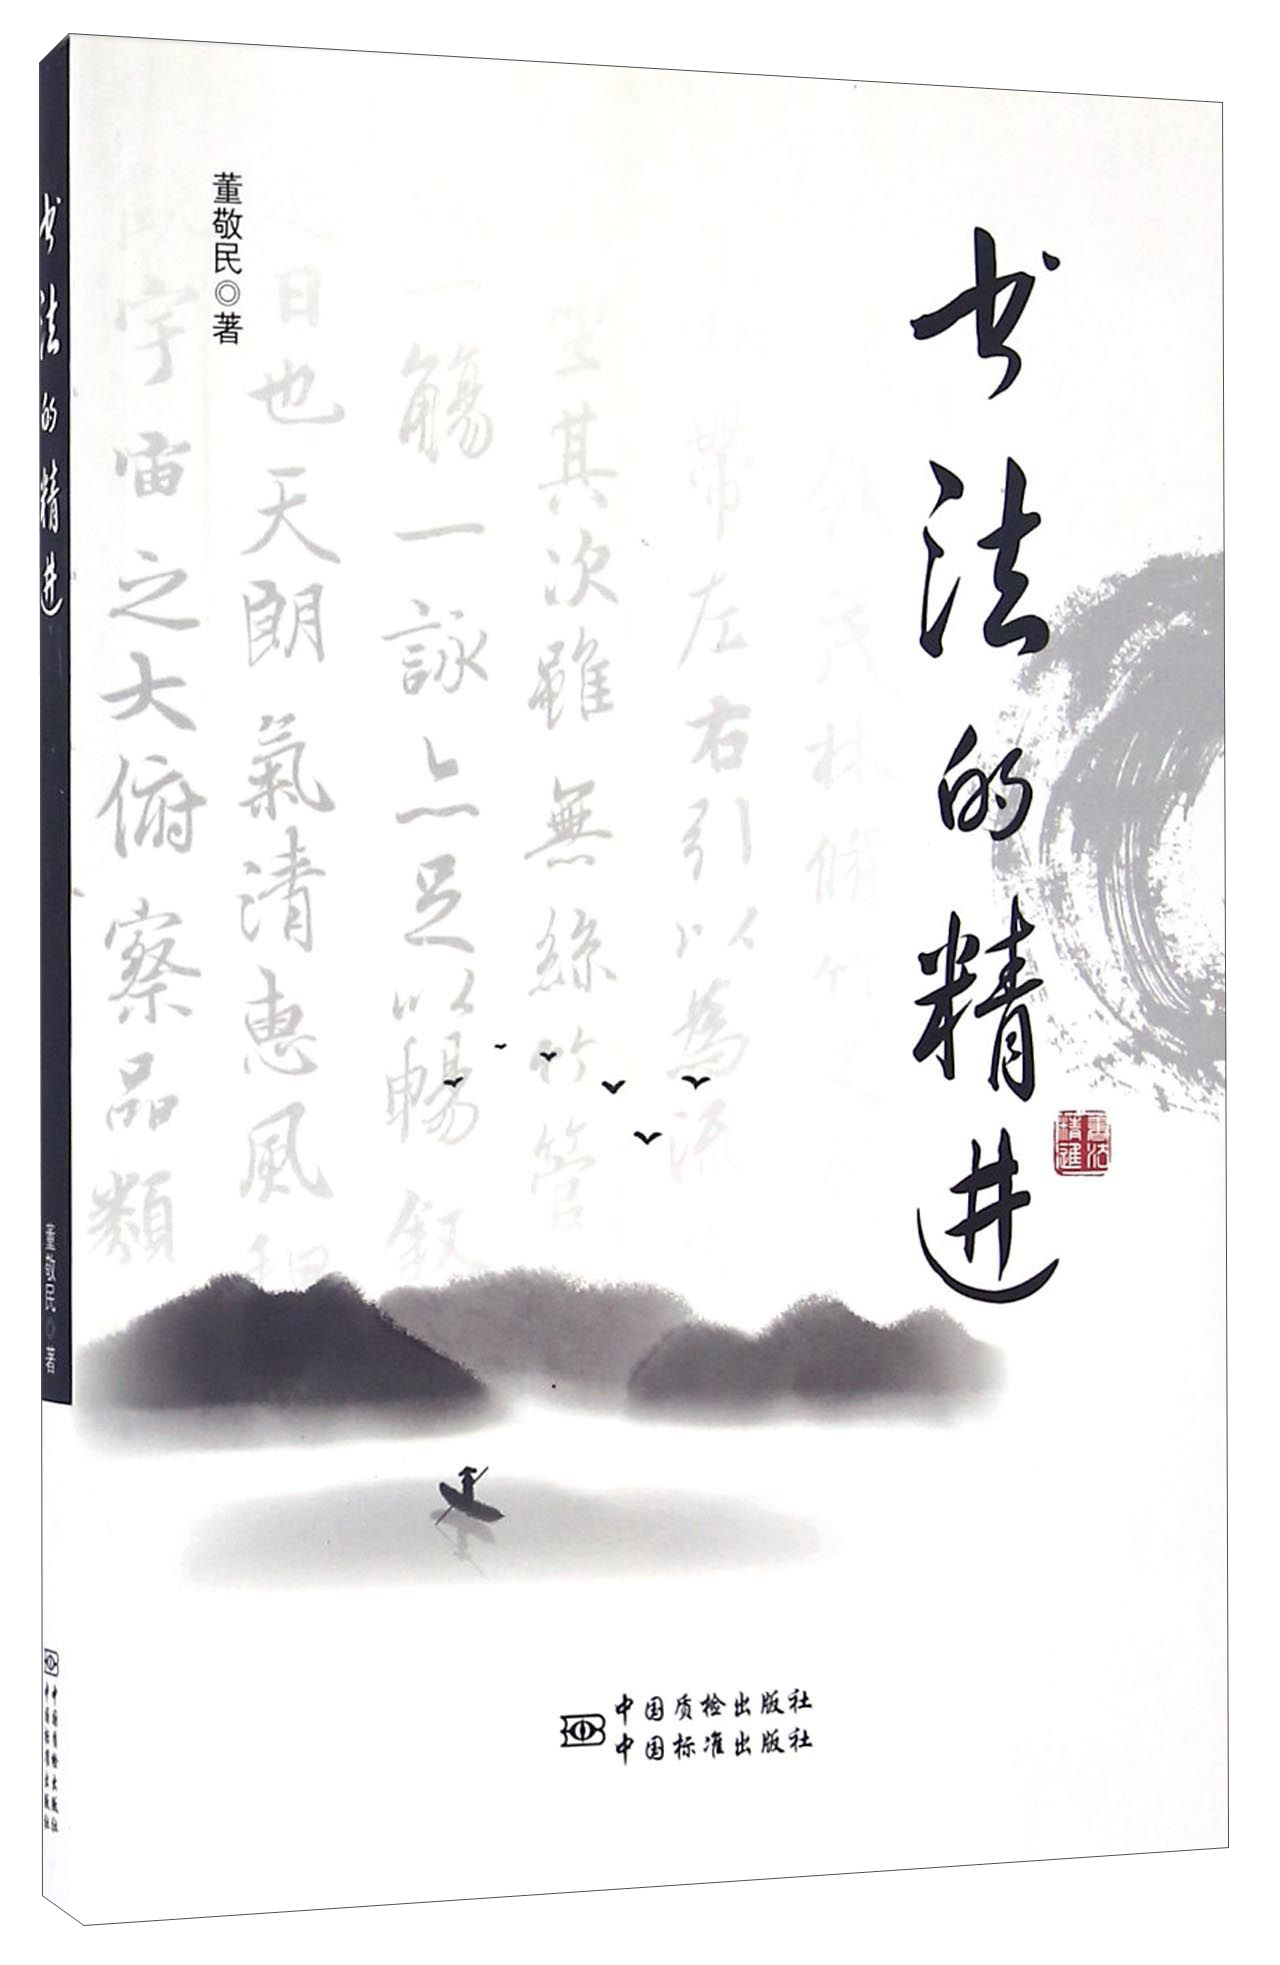 书法的精进
書法
精進
董敬民◎著
領茂林脩竹
帶左右引以為流
坐其次雖無絲竹管
一觴一詠亦足以暢叙
日也天朗氣清惠風和
宇宙之大俯察品類
中国质检出版社
中国标准出版社
书法的精进
董敬民◎著
中国质检出版社
中国标准出版社